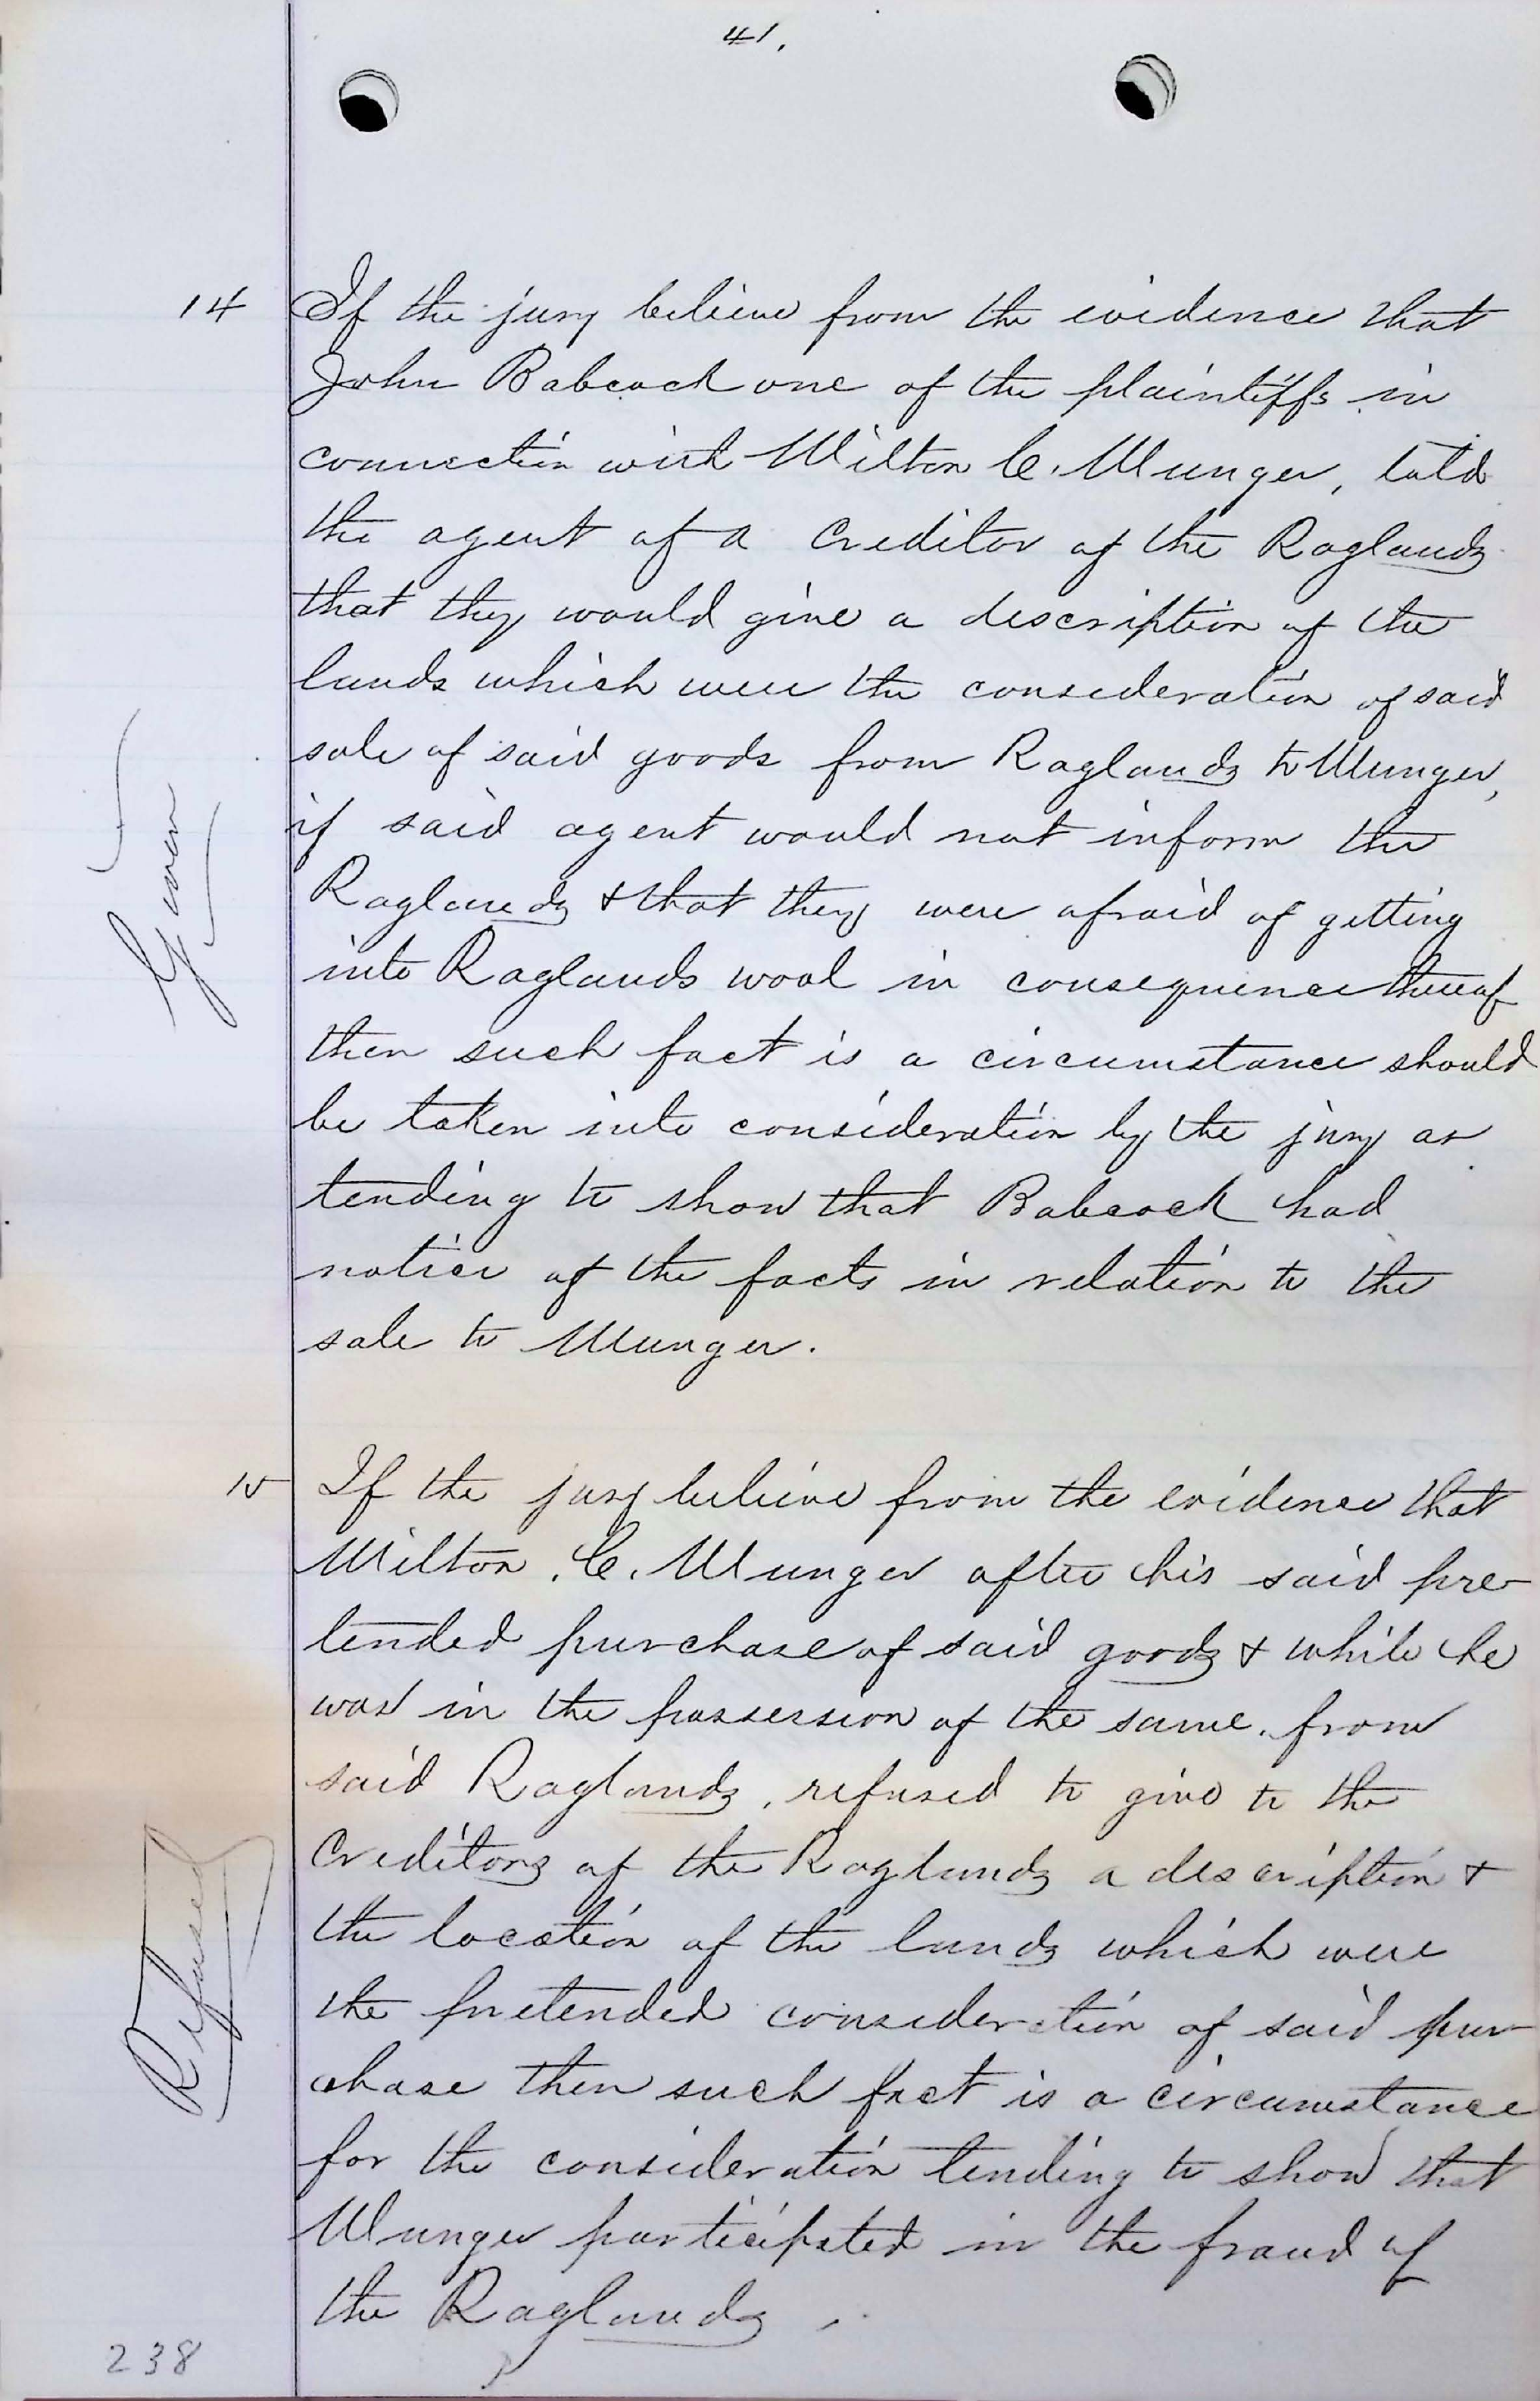 41.
14 If the jury believe from the evidence that
John Babcock one of the plaintiffs in
connection with Milton C. Munger, told
the agent of a Creditor of the Raglands
that they would give a description of the
lands which were the consideration of said
sale of said goods from Raglands to Munger,
if said agent would not inform the
Raglands & that they were afraid of getting
into Raglands wool in consequence thereof
then such fact is a circumstance should
be taken into consideration by the jury as
tending to show that Babcock had
notice of the facts in relation to the
sale to Munger.
Given
15 If the jury believe from the evidence that
Milton . C. Munger after his said pre-
tended purchase of said goods & while he
was in the possession of the same. from
said Raglands, refused to give to the
Creditors of the Raglands a description &
the location of the lands which were
the pretended consideration of said pur-
chase then such fact is a circumstance
for the consideration tending to show that
Munger participated in the fraud of
the Raglands.
Refused
238